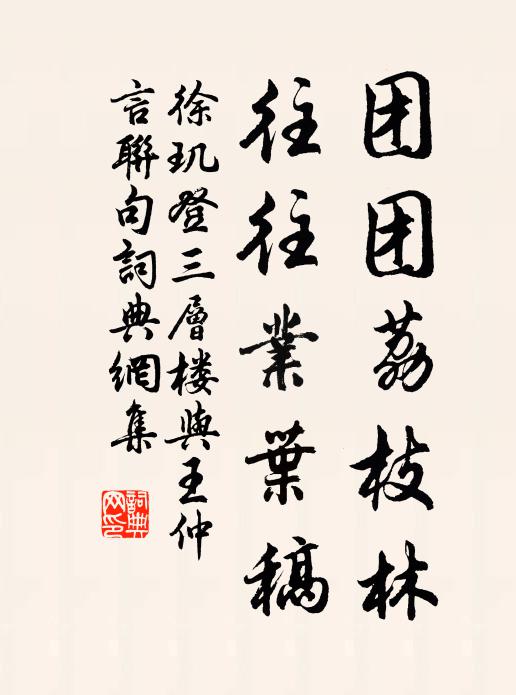 团团荔枝林
往往業葉稿
徐玑登三層楼與王仲
言聯句詞典網集
詞典网印